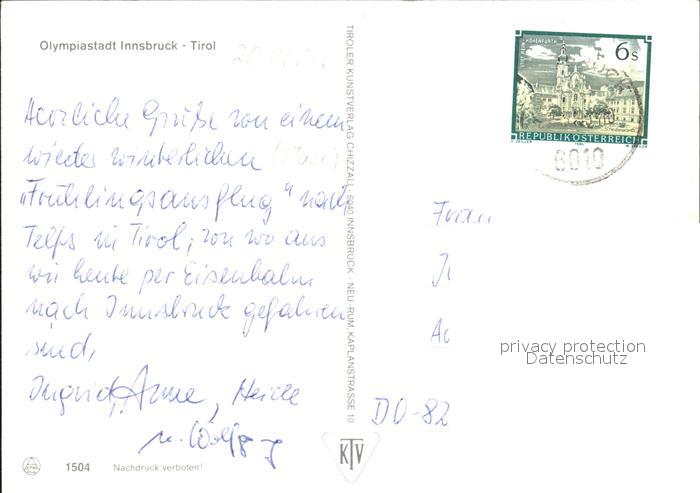 Olympiastadt Innsbruck - Tirol
Herzliche Grüße von einem
wieder winterlichen
"Frühlingsausflug" nach
Telfs in Tirol, von wo aus
wir heute per Eisenbahn
nach Innsbruck gefahren
sind,
Ingrid, Anne, Heide
u. Wolfg
1504 Nachdruck verboten!
TIROLER KUNSTVERLAG CHIZZALI, 6040 INNSBRUCK - NEU-RUM, KAPLANSTRASSE 10
KTV
STIFT REIN-HOHENFURTH
6 S
REPUBLIK ÖSTERREICH
6010
Frau
DO-82
privacy protection
Datenschutz